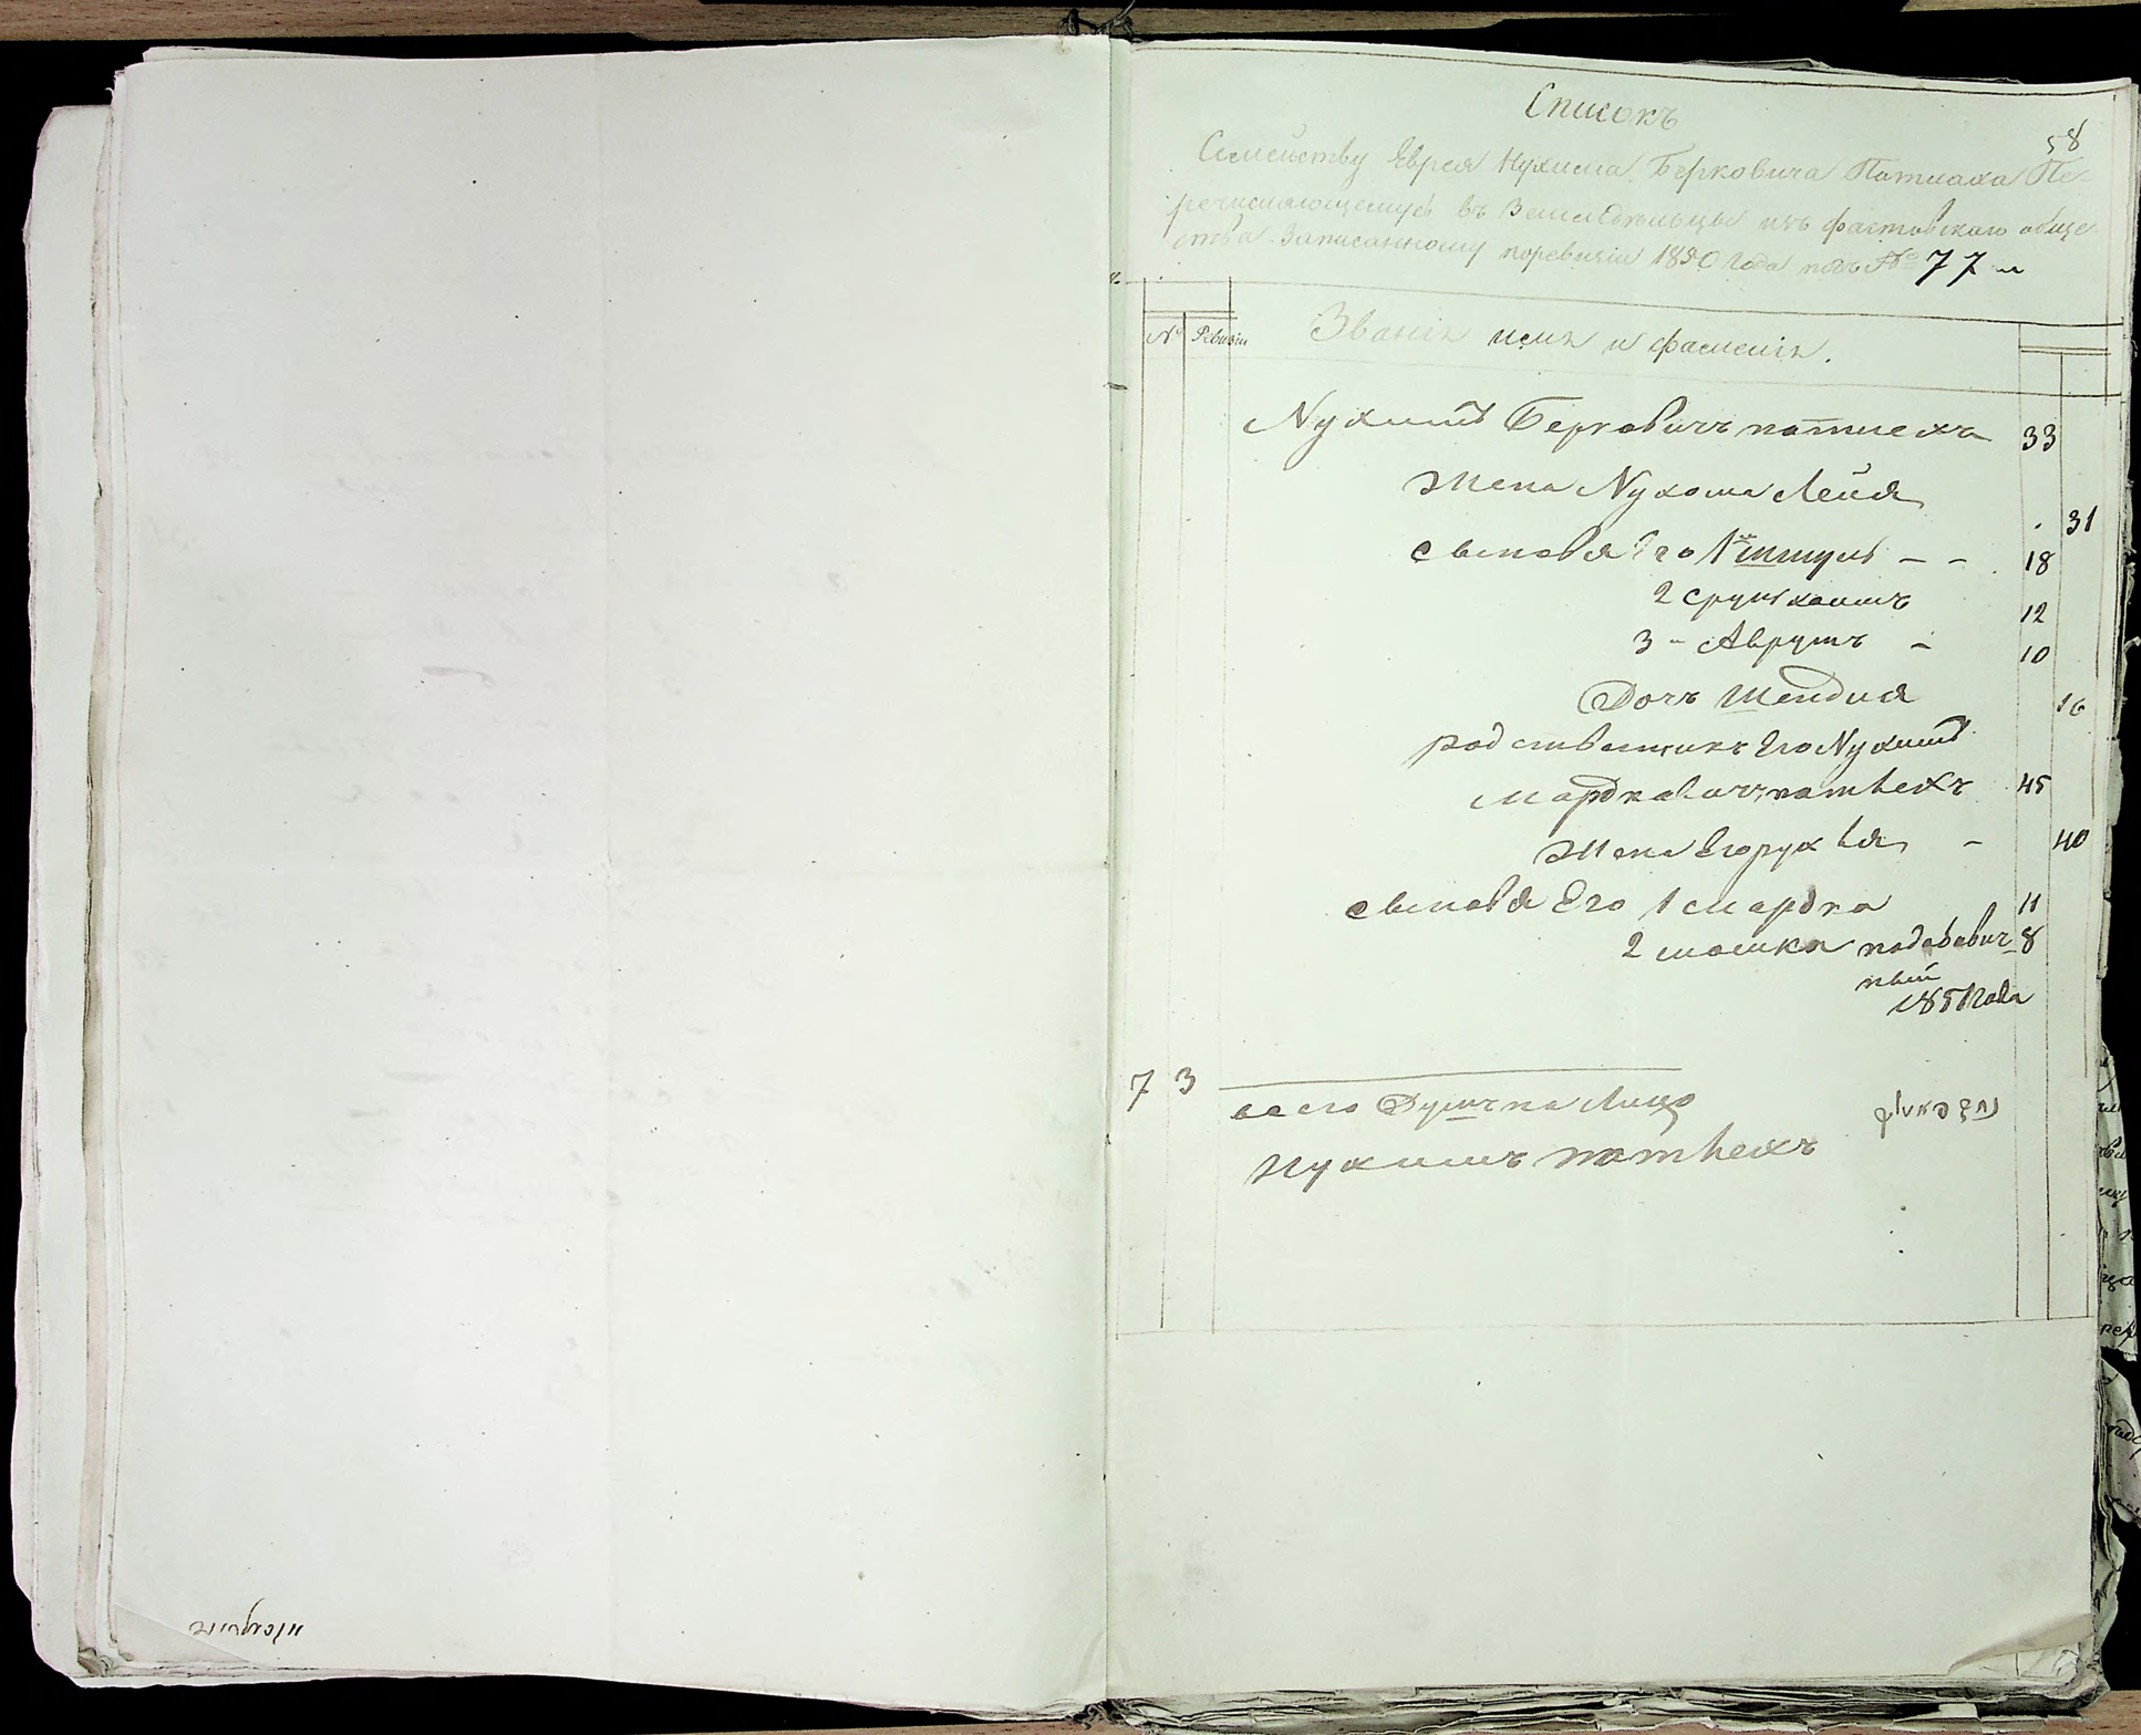 58
Списокъ
Семейству Еврея Нухима Берковича Патиаха Пе-
речисляющемусь въ Земледѣльцы изъ фастовскаго обще
ства Записанному поревизіи 1850 года подъ № 77 м
№ Ревизіи Званія имя и фамилія.
Нухимъ Берковичъ патиехъ 33
Жена Нухома Лейя 31
сыновя Его 1й Шмуль - - 18
2 Срулькаимъ 12
3 - Аврумъ - 10
Дочъ Шендия 16
родственикъ Его Нухимъ
Мордковичъ патыехъ 45
Жена Его рухля - 40
сыновя Его 1 Мордко 11
2 мошка подабавич- 8
ный
1851 года
7 3
всего Душъ на Лицо
Нухимъ патыехъ